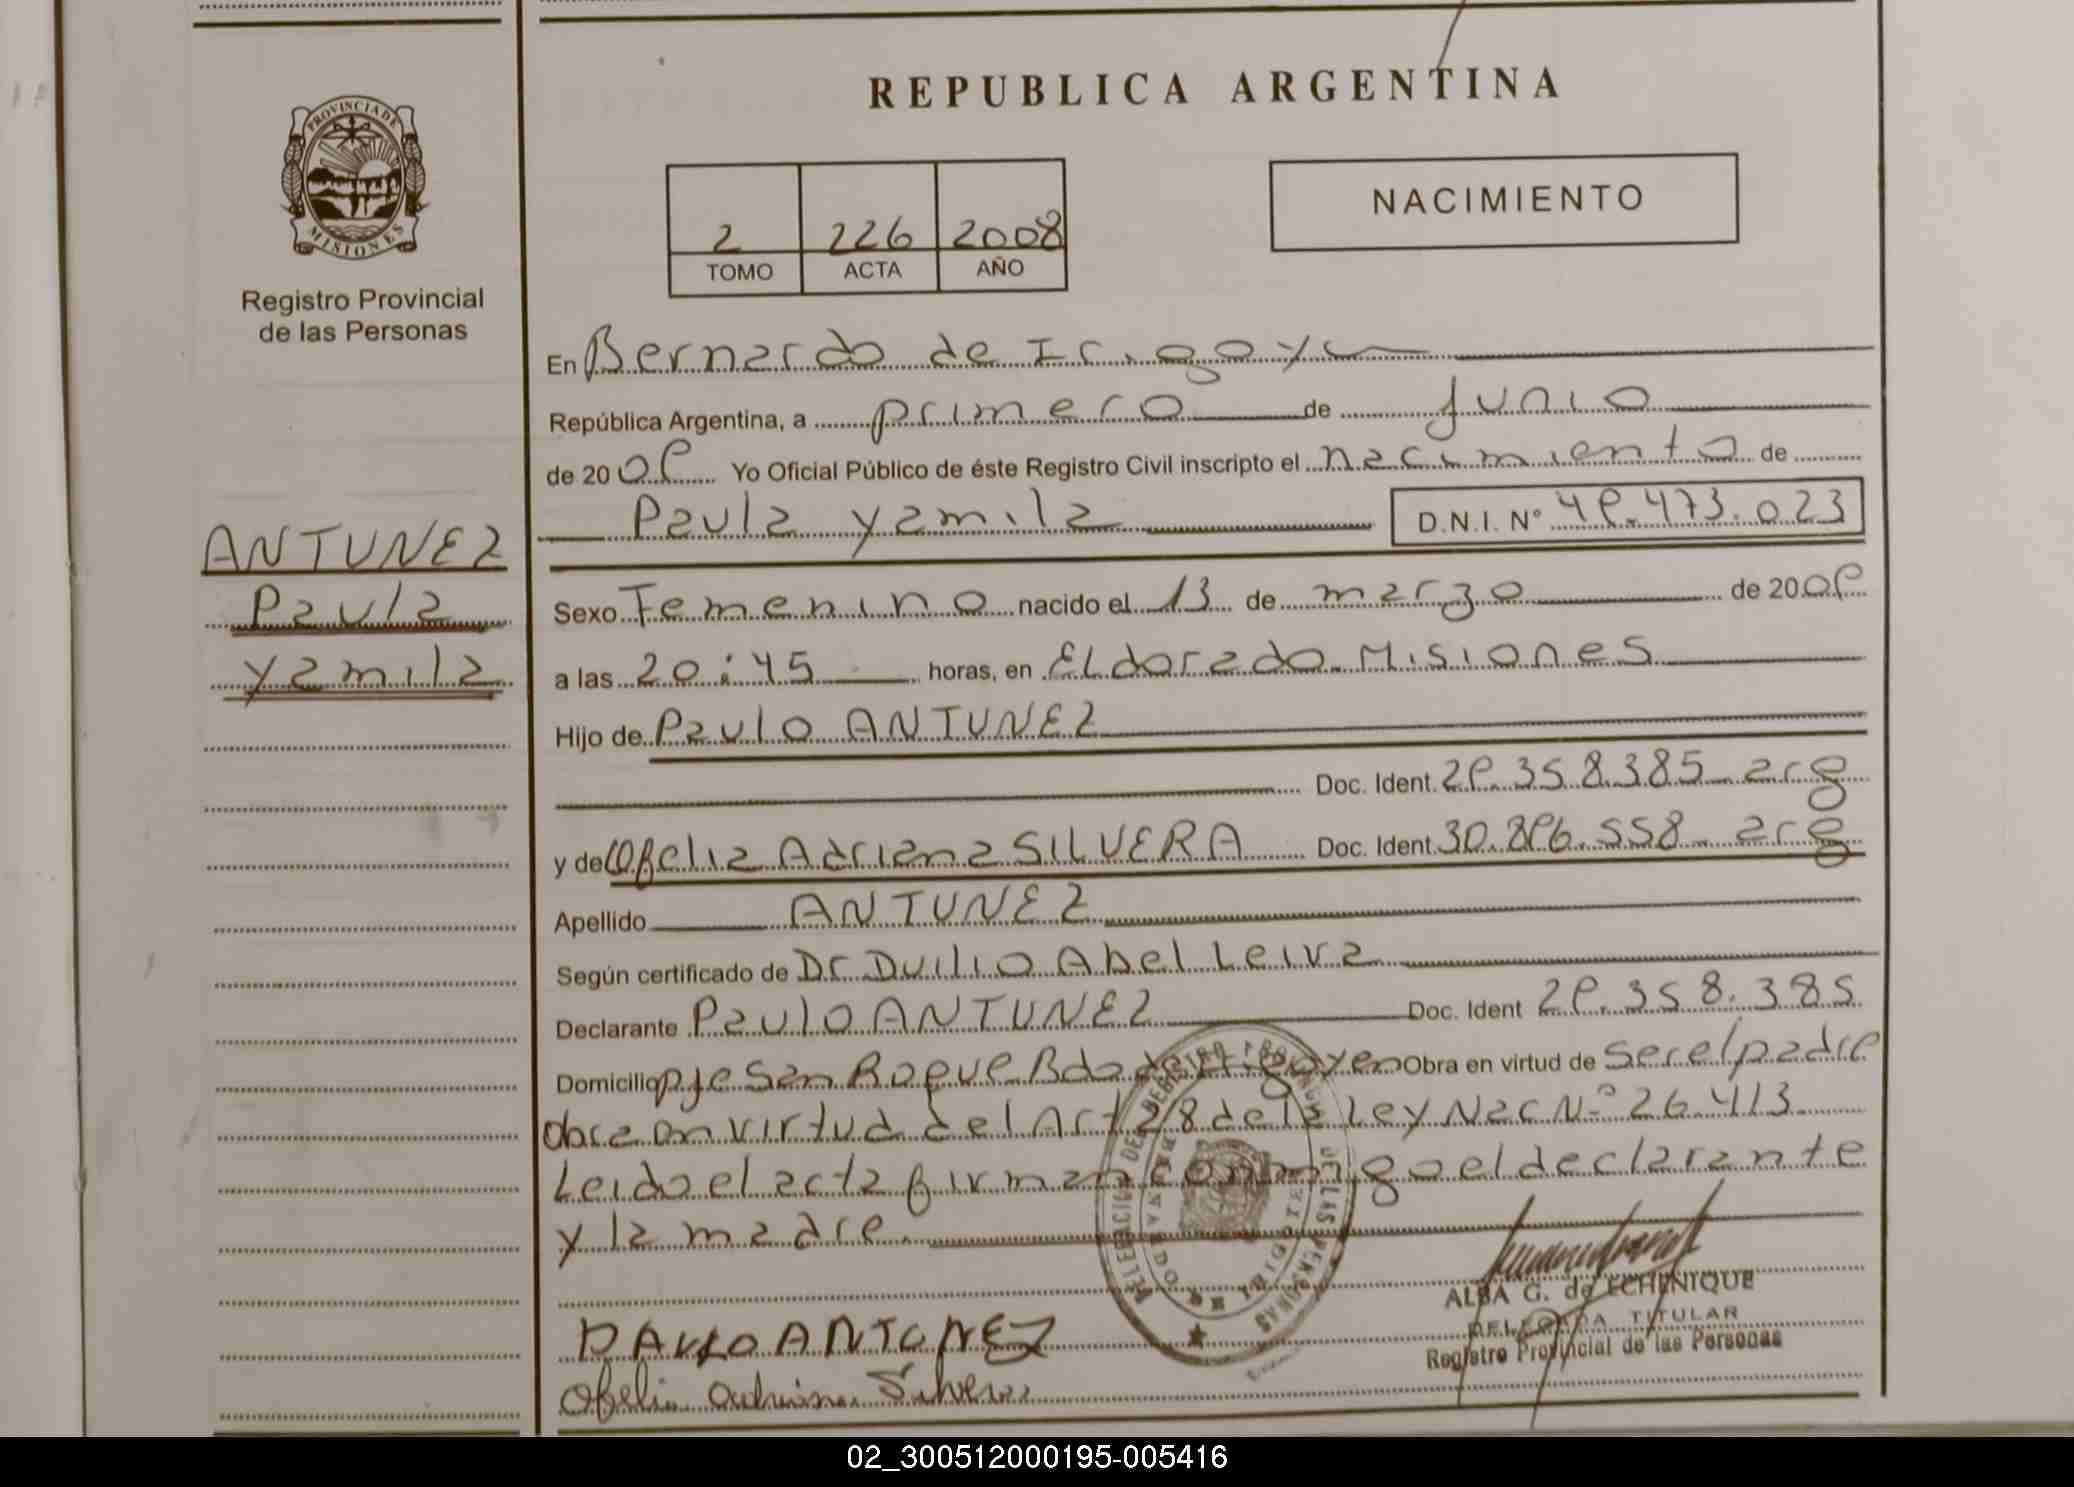 PROVINCIA DE
MISIONES
Registro Provincial
de las Personas
ANTUNEZ
Paula
Yamila
REPUBLICA ARGENTINA
2 226 2008
TOMO ACTA AÑO
NACIMIENTO
En Bernardo de Irigoyen
República Argentina, a primero de junio
de 2009 Yo Oficial Público de éste Registro Civil inscripto el nacimiento de
Paula Yamila D.N.I. Nº 49.473.023
Sexo Femenino nacido el 13 de marzo de 2009
a las 20:45 horas, en Eldorado Misiones
Hijo de Paulo ANTUNEZ
Doc. Ident. 29.358.385 arg
y de Ofelia Adriana SILVERA Doc. Ident. 30.896.558 arg
Apellido ANTUNEZ
Según certificado de Dr Duilio Abel Leiva
Declarante Paulo ANTUNEZ Doc. Ident 29.358.385
Domicilio pje San Roque Bdo de Irigoyen Obra en virtud de ser el padre
obra en virtud del Art 28 de la Ley Nac Nº 26.413
Leido el acta firman conmigo el declarante
y la madre.
PAULO ANTUNEZ
Ofelia Adriana Silvera
ALBA G. de ECHENIQUE
DELEGADA TITULAR
Registro Provincial de las Personas
02_300512000195-005416